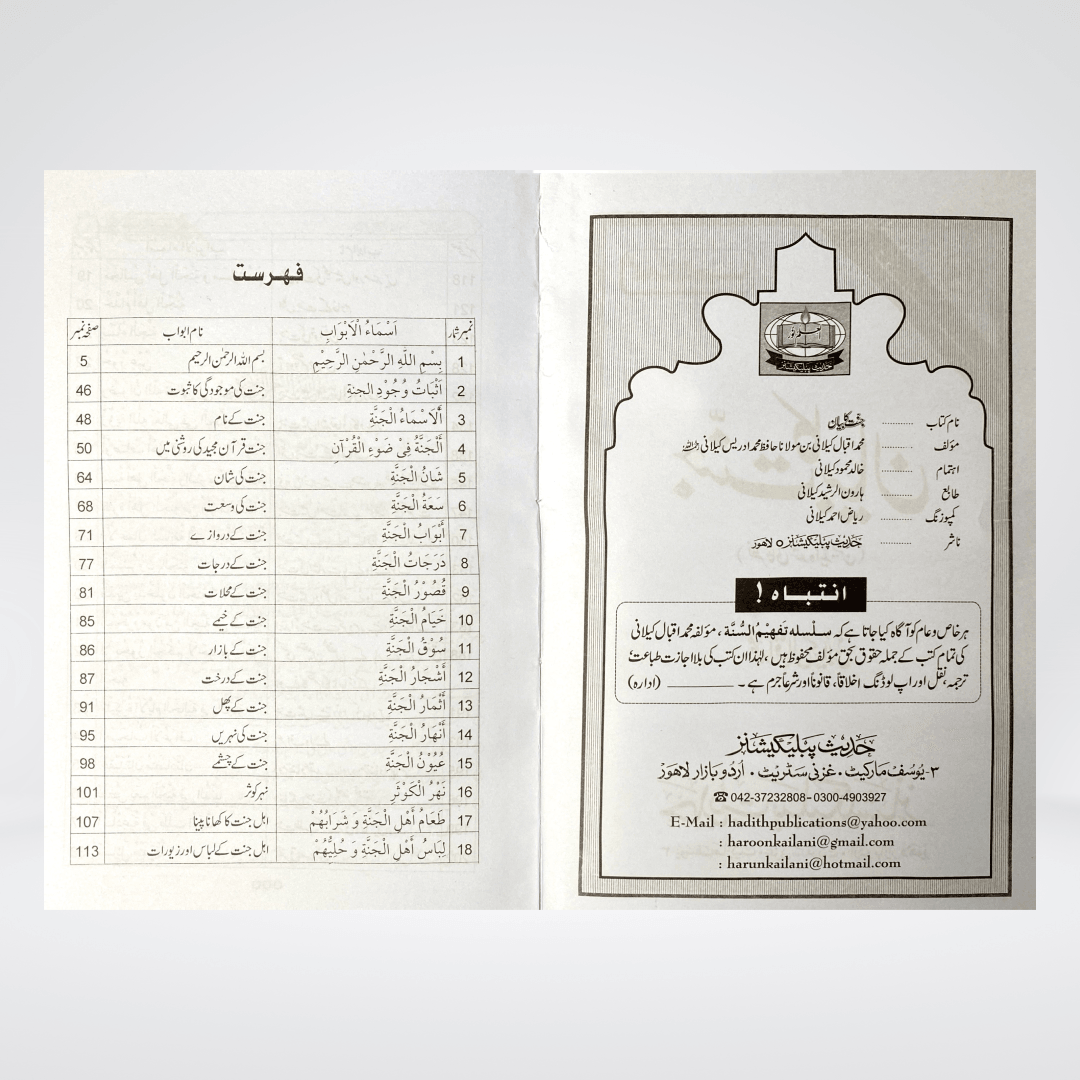 نام کتاب ......... جنت کا بیان
مؤلف ......... محمد اقبال کیلانی بن مولانا حافظ محمد ادریس کیلانی رحمہ اللہ
اہتمام ......... خالد محمود کیلانی
طابع ......... ہارون الرشید کیلانی
کمپوزنگ ......... ریاض احمد کیلانی
ناشر ......... حدیث پبلیکیشنز ○ لاھور
انتباہ !
ہر خاص و عام کو آگاہ کیا جاتا ہے کہ سلسلہ تفہیم السُّنَّة ، مؤلفہ محمد اقبال کیلانی
کی تمام کتب کے جملہ حقوق بحق مؤلف محفوظ ہیں ، لہٰذا ان کتب کی بلا اجازت طباعت ،
ترجمہ، نقل اور اپ لوڈنگ اخلاقاً، قانوناً اور شرعاً جرم ہے ۔ ــــــــــــ (ادارہ)
حدیث پبلیکیشنز
۳- یُوسف مارکیٹ • غزنی سٹریٹ • اُردو بازار لاھور
☎ 042-37232808 - 0300-4903927
E-Mail : hadithpublications@yahoo.com
: haroonkailani@gmail.com
: harunkailani@hotmail.com
فہرست
نمبر شمار اَسْمَاءُ الْاَبْوَابِ نام ابواب صفحہ نمبر
1 بِسْمِ اللّٰهِ الرَّحْمٰنِ الرَّحِيْمِ بسم اللہ الرحمٰن الرحیم 5
2 اَثْبَاتُ وُجُوْدِ الجنةِ جنت کی موجودگی کا ثبوت 46
3 أَلَاسْمَاءُ الْجَنَّةِ جنت کے نام 48
4 اَلْجَنَّةُ فِىْ ضَوْءِ الْقُرْآنِ جنت قرآن مجید کی روشنی میں 50
5 شَانُ الْجَنَّةِ جنت کی شان 64
6 سَعَةُ الْجَنَّةِ جنت کی وسعت 68
7 أَبْوَابُ الْجَنَّةِ جنت کے دروازے 71
8 دَرَجَاتُ الْجَنَّةِ جنت کے درجات 77
9 قُصُوْرُ الْجَنَّةِ جنت کے محلات 81
10 خَيَامُ الْجَنَّةِ جنت کے خیمے 85
11 سُوْقُ الْجَنَّةِ جنت کے بازار 86
12 أَشْجَارُ الْجَنَّةِ جنت کے درخت 87
13 أَثْمَارُ الْجَنَّةِ جنت کے پھل 91
14 أَنْهَارُ الْجَنَّةِ جنت کی نہریں 95
15 عُيُوْنُ الْجَنَّةِ جنت کے چشمے 98
16 نَهْرُ الْكَوْثَرِ نہر کوثر 101
17 طَعَامُ أَهْلِ الْجَنَّةِ وَ شَرَابُهُمْ اہل جنت کا کھانا پینا 107
18 لِبَاسُ أَهْلِ الْجَنَّةِ وَ حُلِيُّهُمْ اہل جنت کے لباس اور زیورات 113